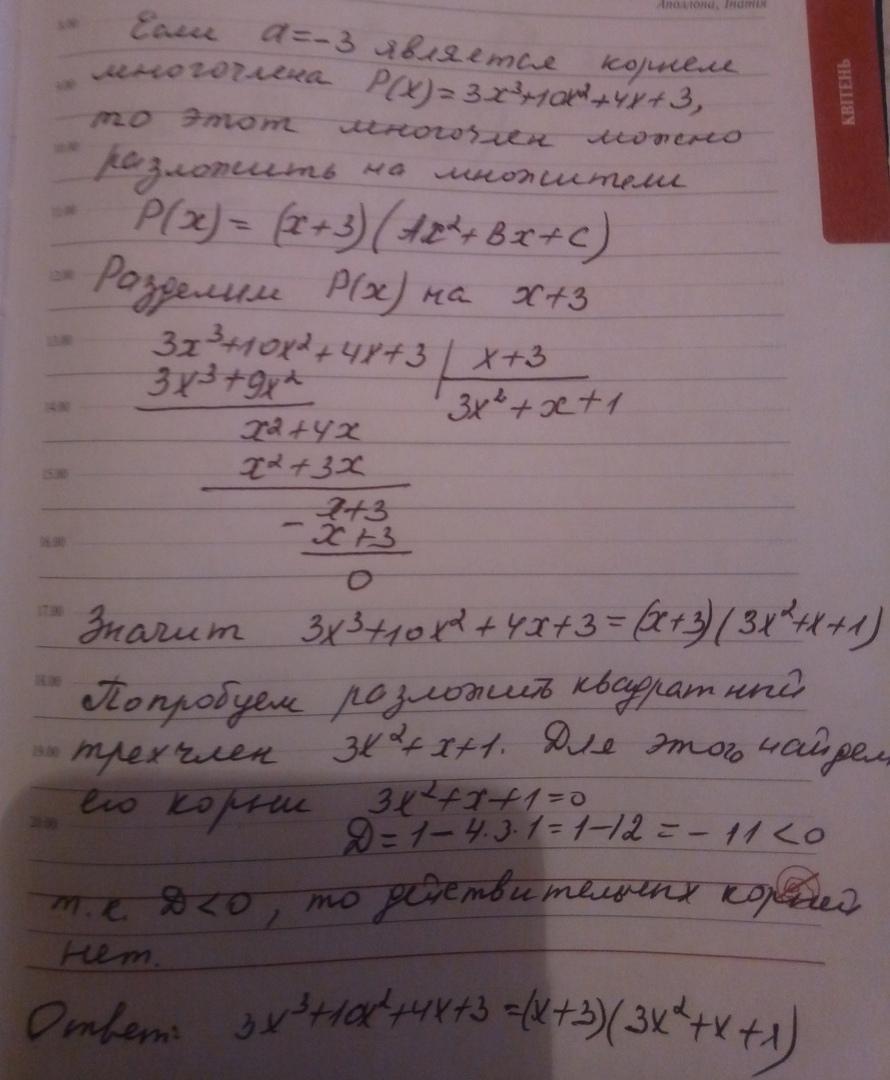 Аполлона, Інатія
КВІТЕНЬ
Если a=-3 является корнем
многочлена P(x)=3x³+10x²+4x+3,
то этот многочлен можно
разложить на множители
P(x)=(x+3)(Ax²+Bx+C)
Разделим P(x) на x+3
3x³+10x²+4x+3 | x+3
3x³+9x² 3x²+x+1
x²+4x
x²+3x
x+3
- x+3
0
Значит 3x³+10x²+4x+3=(x+3)(3x²+x+1)
Попробуем разложить квадратный
трехчлен 3x²+x+1. Для этого найдем
его корни 3x²+x+1=0
D=1-4·3·1=1-12=-11<0
т.к. D<0, то действительных корней
нет.
Ответ: 3x³+10x²+4x+3=(x+3)(3x²+x+1)
8.00
9.00
10.00
11.00
12.00
13.00
14.00
15.00
16.00
17.00
18.00
19.00
20.00